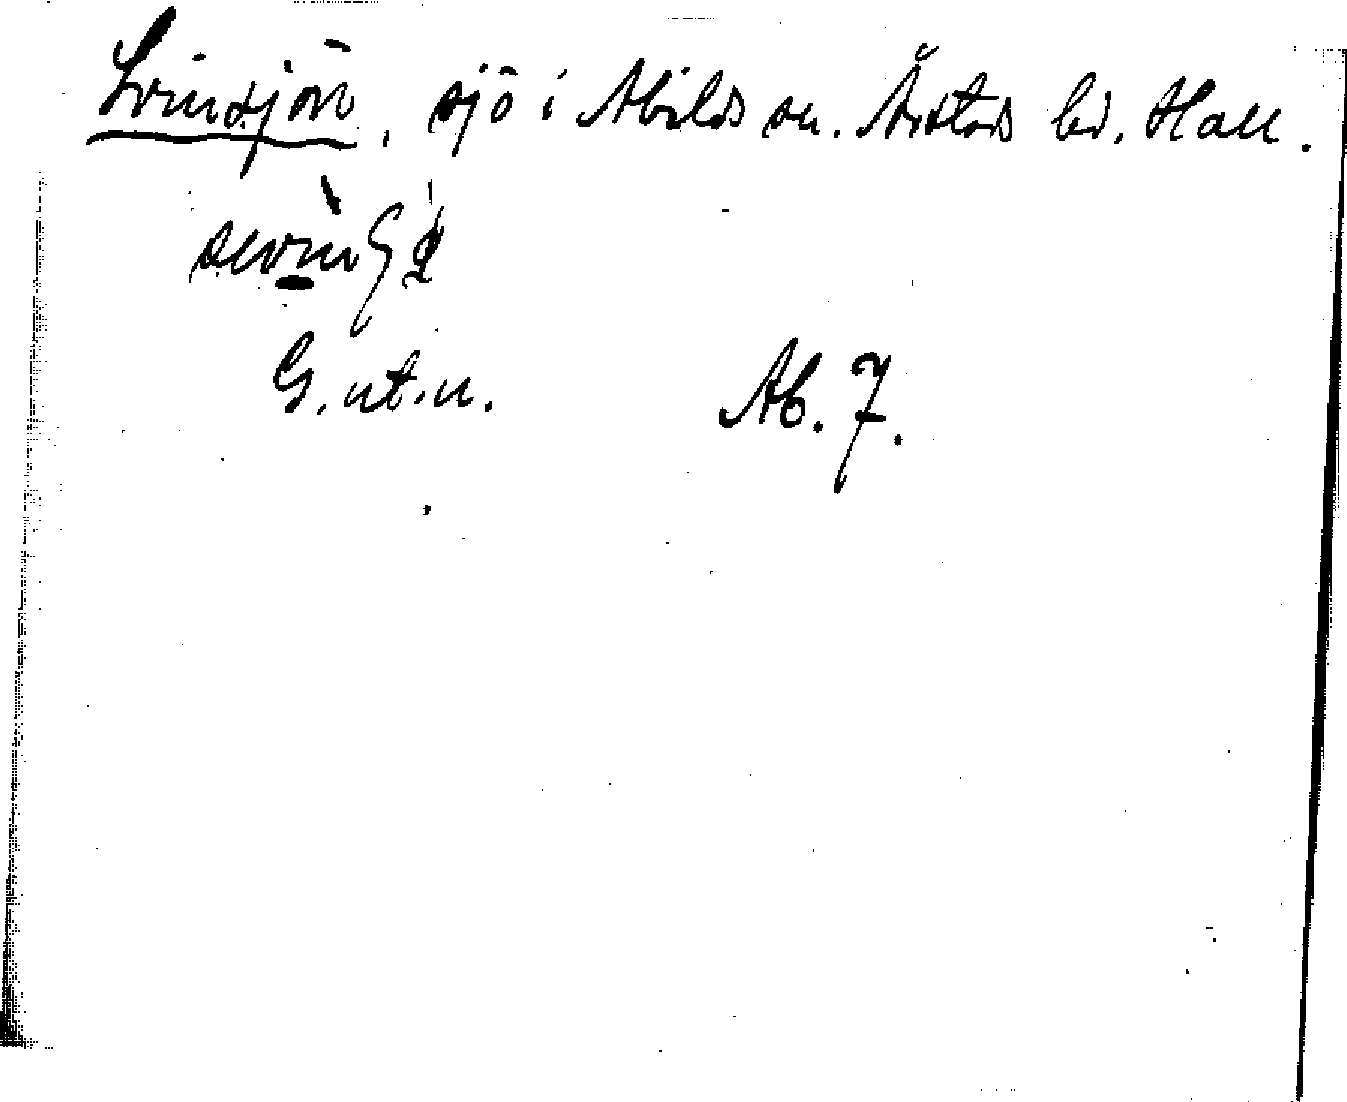 Svinsjön, sjö i Abilds sn. Årstads hd. Hall.
G. ut. u. Ab. 7.